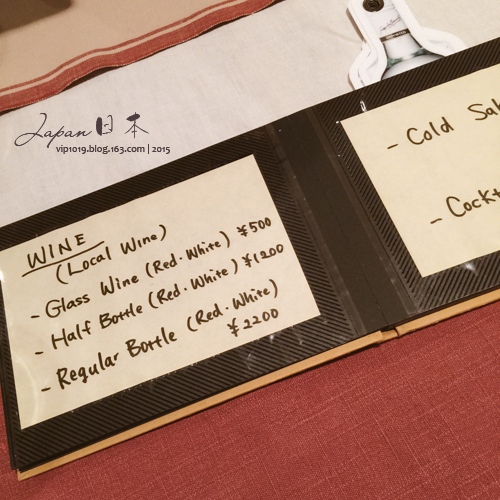 Japan 日本
vip1019.blog.163.com | 2015
WINE
(Local Wine)
- Glass Wine (Red・White) ¥500
- Half Bottle (Red・White) ¥1200
- Regular Bottle (Red・White)
¥2200
- Cold Sa
- Cockt